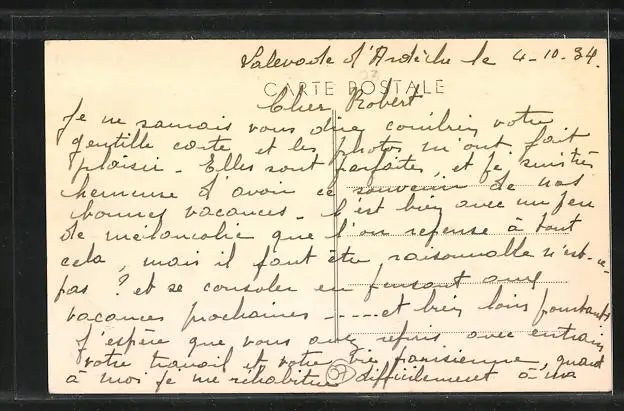 Lalevade d'Ardèche le 4-10-34.
CARTE POSTALE
Cher Robert
Je ne saurais vous dire combien votre
gentille carte et les photos m'ont fait
plaisir - Elles sont parfaites, et je suis très
heureuse d'avoir ce souvenir de nos
bonnes vacances - C'est bien avec un peu
de mélancolie que l'on repense à tout
cela, mais il faut être raisonnable n'est-ce-
pas ? et se consoler en pensant aux
vacances prochaines -----et bien loin pourtant
J'espère que vous avez repris avec entrain
votre travail et votre vie parisienne, quant
à moi je me réhabitue difficilement à ma